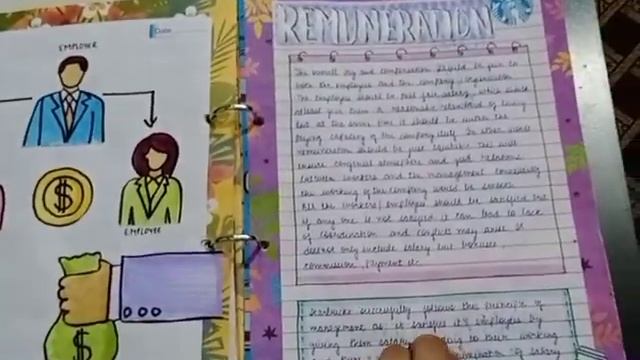 EMPLOYER
Date
EMPLOYEE
REMUNERATION
The overall pay and compensation should be fair to
both the employees and the company / organisation
The employees should be paid fair salary, which would
them a reasonable standard of living
but at the same time it should be within the
paying capacity of the company. In other words
remuneration should be just equitable. This will
ensure congenial atmosphere and good relations
between workers and the management consequently
the working of the company would be smooth
All the workers/employees should be satisfied but
if any one is not satisfied it can lead to lack
of coordination and conflicts may arise. It
doesnot only include salary but bonuses
commission, Payment etc.
Starbucks successfully follows the Principle of
management as it satisfies it's employees by
giving them salary according to their working
of salary